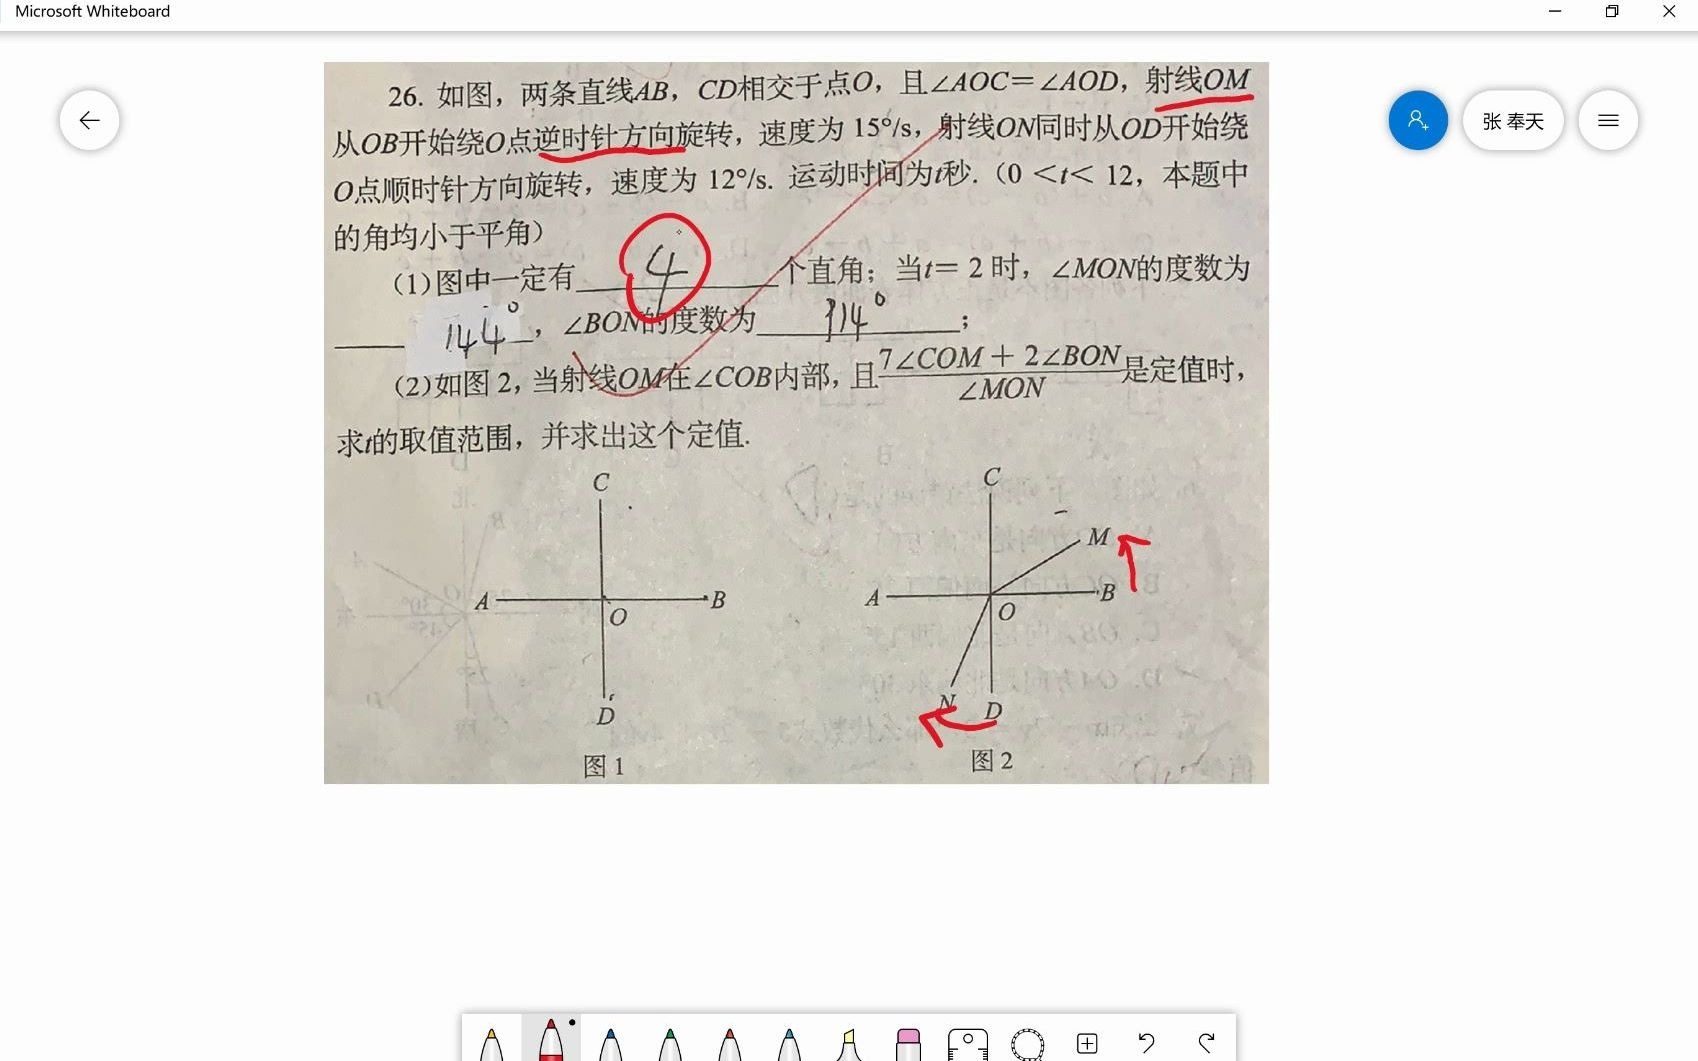 Microsoft Whiteboard
张 奉天
26. 如图，两条直线AB，CD相交于点O，且∠AOC=∠AOD，射线OM
从OB开始绕O点逆时针方向旋转，速度为 15°/s，射线ON同时从OD开始绕
O点顺时针方向旋转，速度为 12°/s. 运动时间为t秒.（0 <t< 12，本题中
的角均小于平角）
(1)图中一定有 4 个直角；当t= 2 时，∠MON的度数为
144°，∠BON的度数为 114°；
(2)如图 2，当射线OM在∠COB内部，且 7∠COM + 2∠BON / ∠MON 是定值时，
求t的取值范围，并求出这个定值.
C
A
O
B
D
图 1
C
M
A
O
B
N
D
图 2